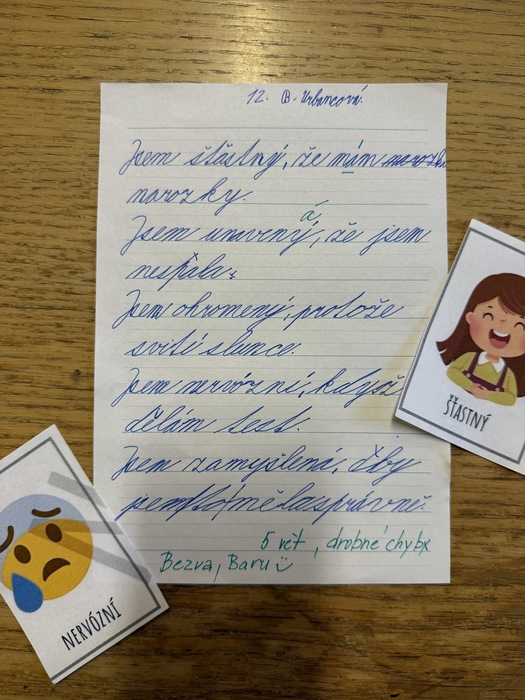 12. B. Urbancová.
Jsem šťastný, že mám
narozky.
á
Jsem unavený, že jsem
nespala.
Jsem ohromený, protože
svítí slunce.
Jsem nervózní, když
dělám test.
Jsem zamyšlená,
to měla správně.
5 vět, drobné chyby
Bezva, Baru
ŠŤASTNÝ
NERVÓZNÍ